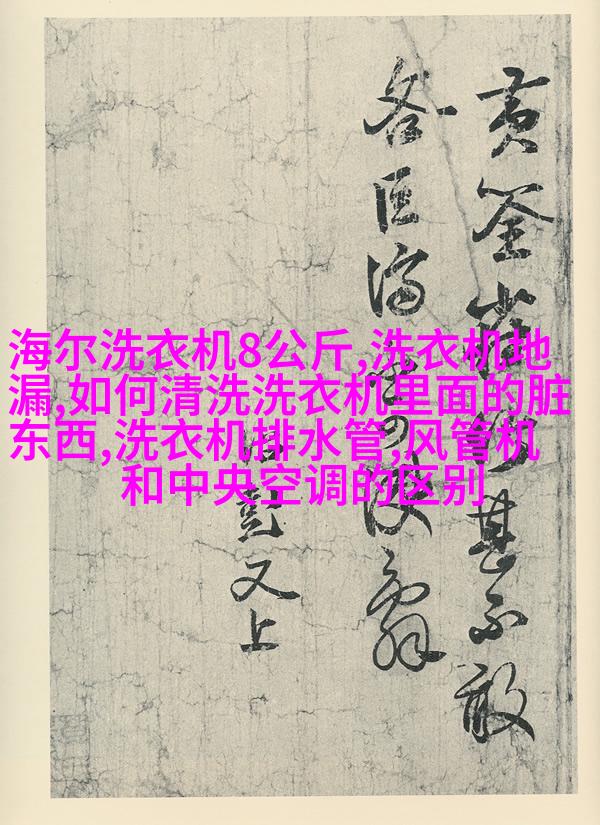 海尔洗衣机8公斤,洗衣机地
漏,如何清洗洗衣机里面的脏
东西,洗衣机排水管,风管机
和中央空调的区别
黄筌甚不敢
彭又上